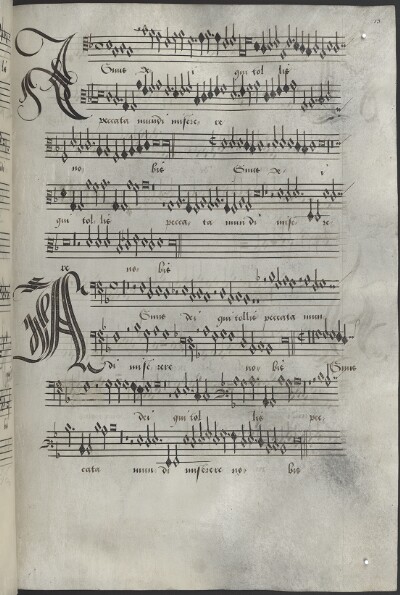 Agnus dei qui tol lis
peccata mundi misere, re
no, bis Gnus de, i
qui tol, lis pecca, ta mun di mise, re,
re no, bis
AGnus dei qui tollis peccata mun,
di mise rere no, bis Gnus
dei qui tol, lis pec,
cata mun, di miserere no, bis